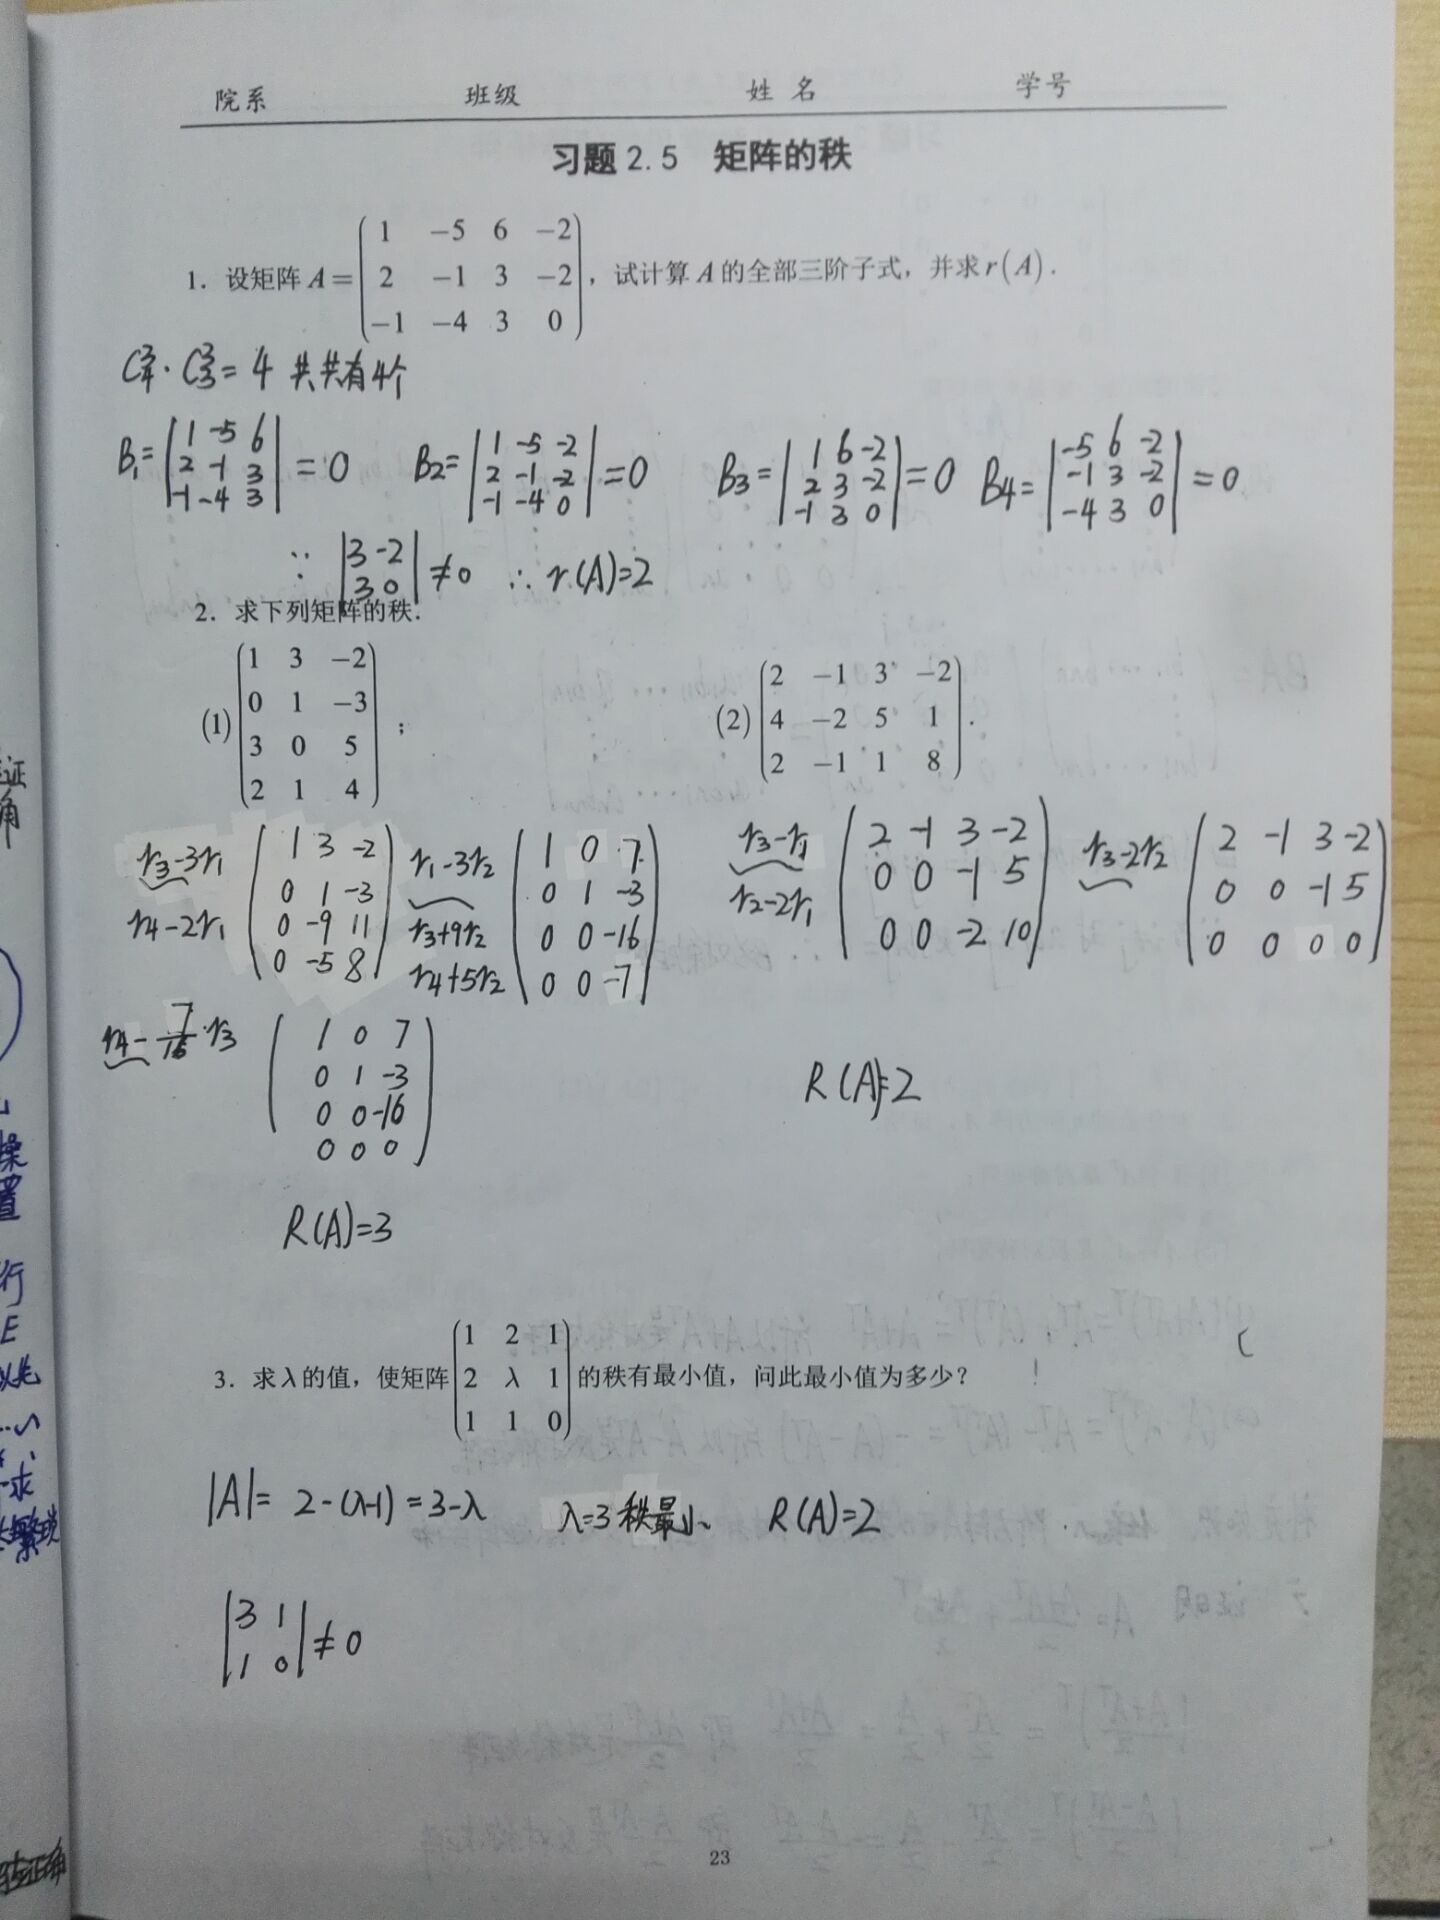 院系 班级 姓名 学号
习题2.5 矩阵的秩
1. 设矩阵 A = \begin{pmatrix} 1 & -5 & 6 & -2 \\ 2 & -1 & 3 & -2 \\ -1 & -4 & 3 & 0 \end{pmatrix}, 试计算 A 的全部三阶子式, 并求 r(A).
C_4^3 · C_3^3 = 4 共共有4个
B_1 = \begin{vmatrix} 1 & -5 & 6 \\ 2 & -1 & 3 \\ -1 & -4 & 3 \end{vmatrix} = 0 B_2 = \begin{vmatrix} 1 & -5 & -2 \\ 2 & -1 & -2 \\ -1 & -4 & 0 \end{vmatrix} = 0 B_3 = \begin{vmatrix} 1 & 6 & -2 \\ 2 & 3 & -2 \\ -1 & 3 & 0 \end{vmatrix} = 0 B_4 = \begin{vmatrix} -5 & 6 & -2 \\ -1 & 3 & -2 \\ -4 & 3 & 0 \end{vmatrix} = 0
∵ \begin{vmatrix} 3 & -2 \\ 3 & 0 \end{vmatrix} ≠ 0 ∴ r(A)=2
2. 求下列矩阵的秩.
(1) \begin{pmatrix} 1 & 3 & -2 \\ 0 & 1 & -3 \\ 3 & 0 & 5 \\ 2 & 1 & 4 \end{pmatrix}; (2) \begin{pmatrix} 2 & -1 & 3 & -2 \\ 4 & -2 & 5 & 1 \\ 2 & -1 & 1 & 8 \end{pmatrix}.
r_3-3r_1 r_4-2r_1 \begin{pmatrix} 1 & 3 & -2 \\ 0 & 1 & -3 \\ 0 & -9 & 11 \\ 0 & -5 & 8 \end{pmatrix} r_1-3r_2 r_3+9r_2 r_4+5r_2 \begin{pmatrix} 1 & 0 & 7 \\ 0 & 1 & -3 \\ 0 & 0 & -16 \\ 0 & 0 & -7 \end{pmatrix}
r_3-r_1 r_2-2r_1 \begin{pmatrix} 2 & -1 & 3 & -2 \\ 0 & 0 & -1 & 5 \\ 0 & 0 & -2 & 10 \end{pmatrix} r_3-2r_2 \begin{pmatrix} 2 & -1 & 3 & -2 \\ 0 & 0 & -1 & 5 \\ 0 & 0 & 0 & 0 \end{pmatrix}
r_4-\frac{7}{16}·r_3 \begin{pmatrix} 1 & 0 & 7 \\ 0 & 1 & -3 \\ 0 & 0 & -16 \\ 0 & 0 & 0 \end{pmatrix}
R(A)=2
R(A)=3
3. 求λ的值, 使矩阵 \begin{pmatrix} 1 & 2 & 1 \\ 2 & λ & 1 \\ 1 & 1 & 0 \end{pmatrix} 的秩有最小值, 问此最小值为多少?
|A| = 2-(λ-1) = 3-λ λ=3 秩最小 R(A)=2
\begin{vmatrix} 3 & 1 \\ 1 & 0 \end{vmatrix} ≠ 0
23
证
角
操
置
行
E
求
繁琐